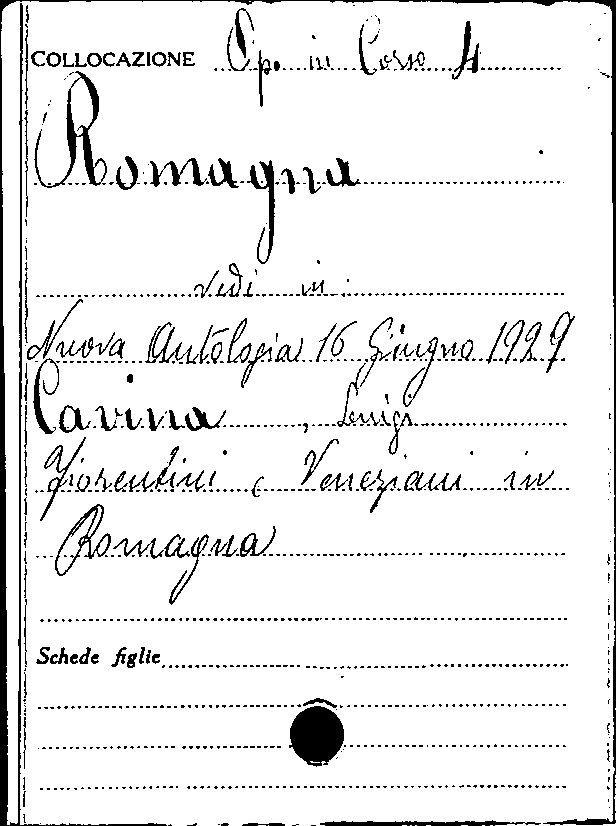 COLLOCAZIONE Op. in Corso 4
Romagna
vedi in:
Nuova Antologia 16 Giugno 1929
Cavina, Luigi
Fiorentini e Veneziani in
Romagna
Schede figlie